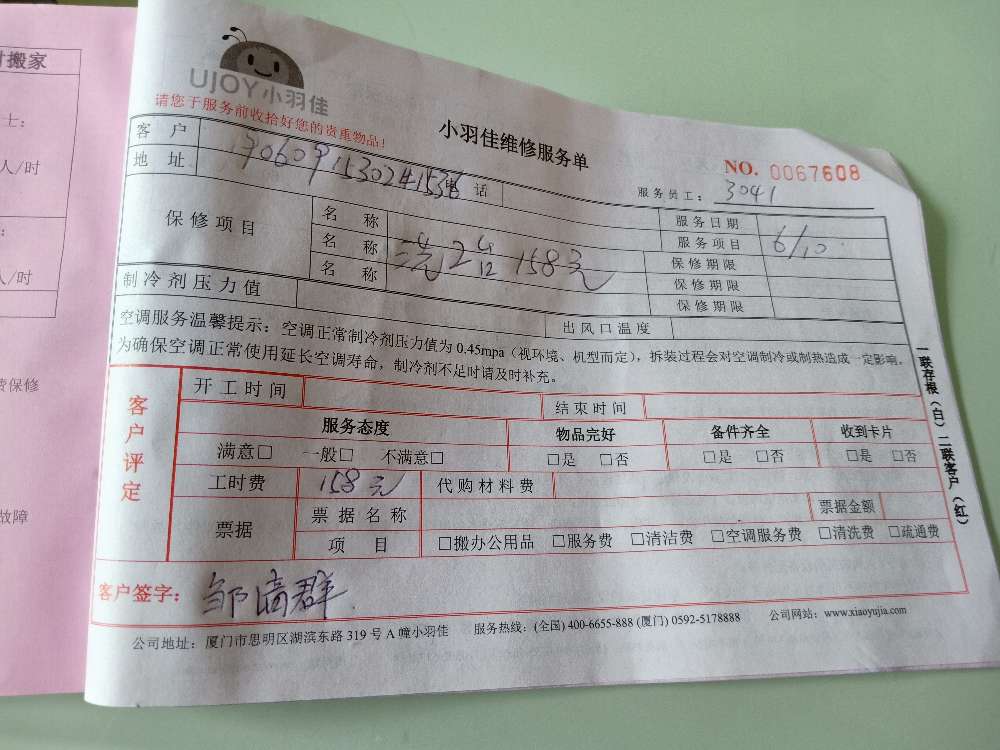 时搬家
士：
人/时
：
人/时
费保修
故障
UJOY小羽佳
请您于服务前收拾好您的贵重物品！
小羽佳维修服务单
NO. 0067608
服务员工： 3041
客 户
地 址 电 话
保修项目 名 称 服务日期
名 称 2台 158元 服务项目 6/10
名 称 保修期限
保修期限
制冷剂压力值 保修期限
出风口温度
空调服务温馨提示：空调正常制冷剂压力值为 0.45mpa（视环境、机型而定），拆装过程会对空调制冷或制热造成一定影响，
为确保空调正常使用延长空调寿命，制冷剂不足时请及时补充。
客户评定
开工时间 结束时间
服务态度 物品完好 备件齐全 收到卡片
满意□ 一般□ 不满意□ □是 □否 □是 □否 □是 □否
工时费 158元 代购材料费
票据 票据名称 票据金额
项 目 □搬办公用品 □服务费 □清洁费 □空调服务费 □清洗费 □疏通费
客户签字：
公司地址：厦门市思明区湖滨东路 319 号 A 幢小羽佳 服务热线：(全国) 400-6655-888 (厦门) 0592-5178888 公司网站：www.xiaoyujia.com
一联存根（白）二联客户（红）